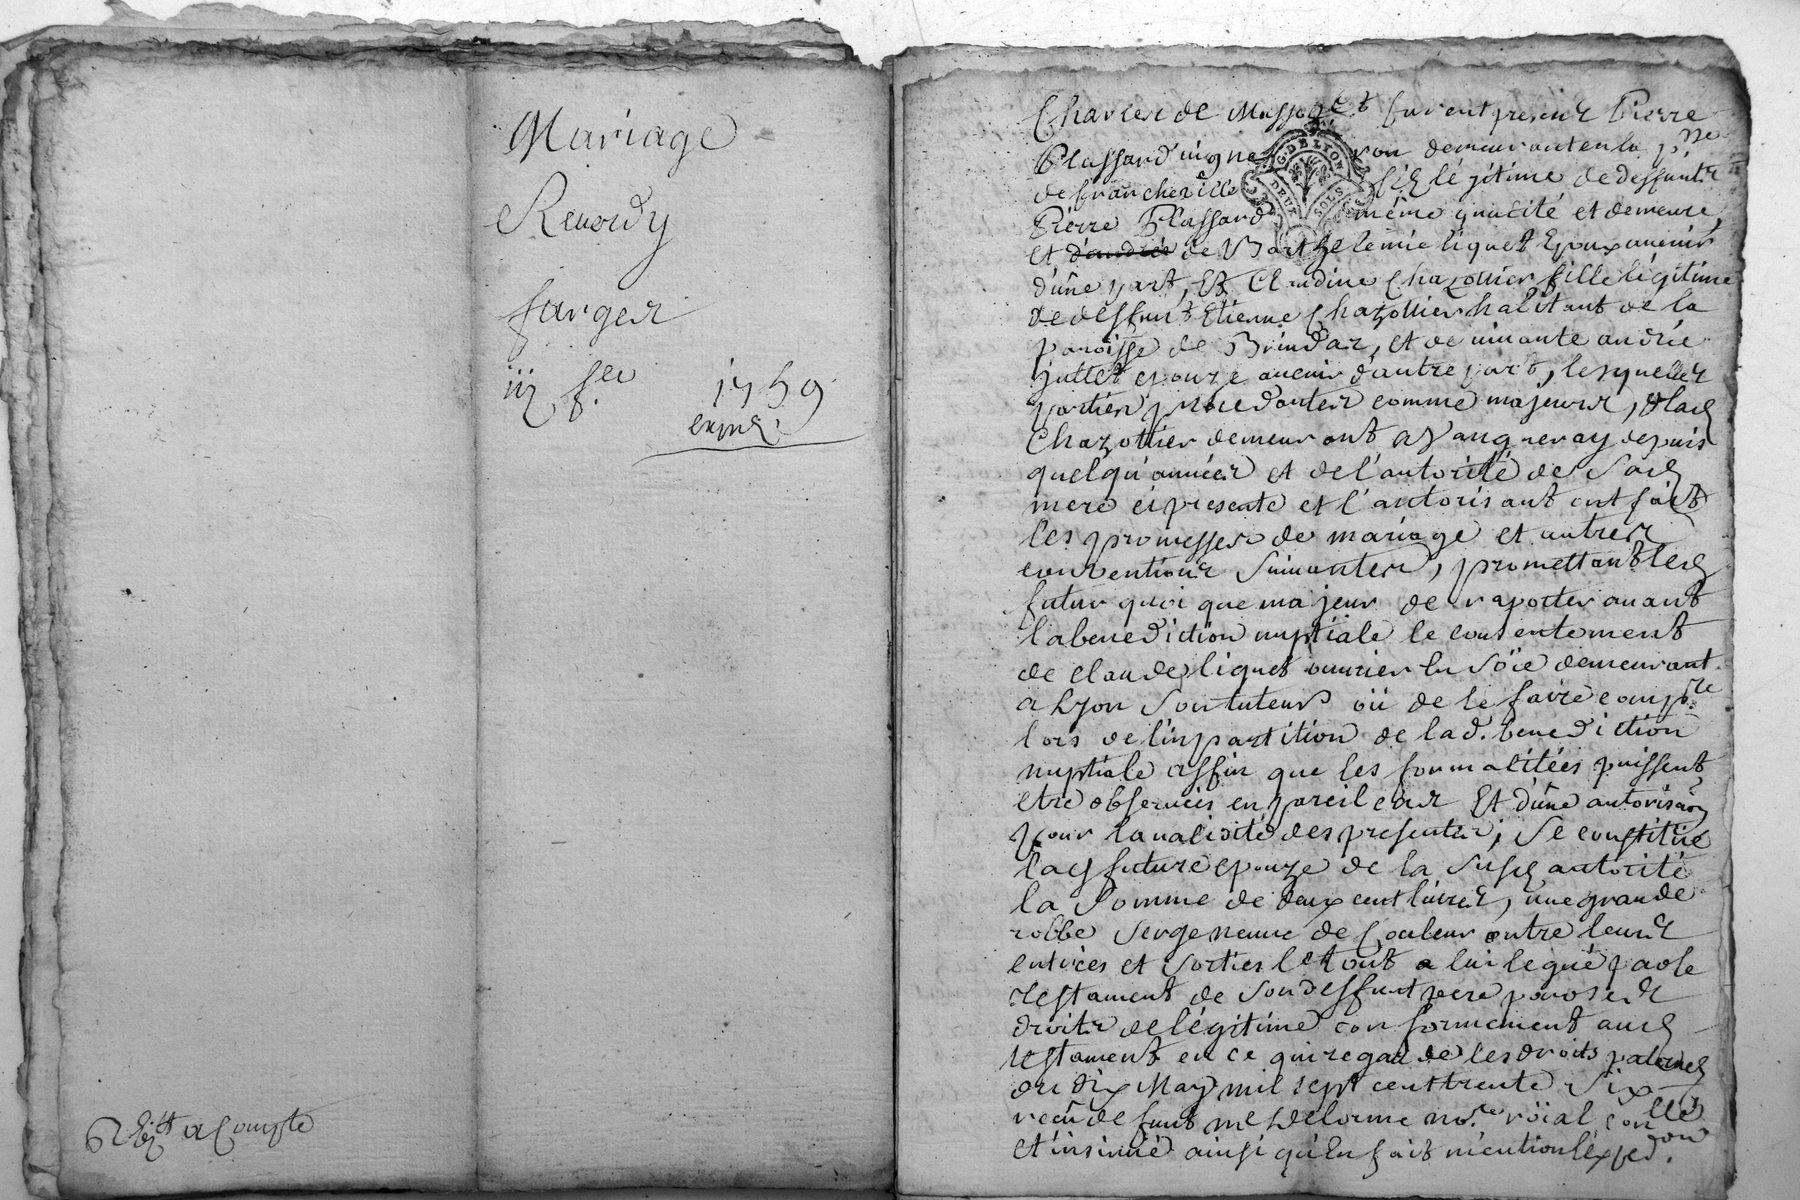 Mariage
Revordy
farges
iij f.
1759
expéd.
6# à Compte
Chareze de Massog furent presens Pierre
Plassard vigne ron demeurant en la p.sse
de francheville fils légitime de deffunts
Pierre Plassard même qualité et demeure,
et d'andrée de Barthelemie liquet Epoux avenir
d'une part, Et Claudine Chazottier fille légitime
de deffunt Etienne Chazottier habitant de la
paroisse de Brindas, et de vivante andrée
juttet epouze avenir d'autre part, lesquelles
parties procedantes comme majeurs, & lad
Chazottier demeurant a Vaugneray depuis
quelqu'années et de l'autorité de Sad
mere ci presente et l'autorisant ont fait
les promesses de mariage et autres
conventions Suivantes, promettant led
futur quoi que majeur de raporter avant
la benediction nuptiale le consentement
de claude liquet ouvrier en Söie demeurant
a Lyon Son tuteur oü de le faire comp.re
lors de l'impartition de lad. benediction
nuptiale affin que les formalitées puissent
etre observées en pareil cas Et d'une autorisaon
pour la validité des presentes; Se constitüe
lad future epouze de la Susd autorité
la Somme de deux cent livres, une grande
robbe Serge neuve de Couleur outre leurs
entrées et Sorties le tout a lui legué par le
testament de Son deffunt pere pour ses
droits de légitime conformement aud
testament en ce qui regarde les droits paternels
du dix May mil sept cent trente Six
recü defunt me Delorme no.re röial con.llé
et insinüé ainsi qu'En fait mention l'exped.on
G. DE LYON
DEUX SOLS